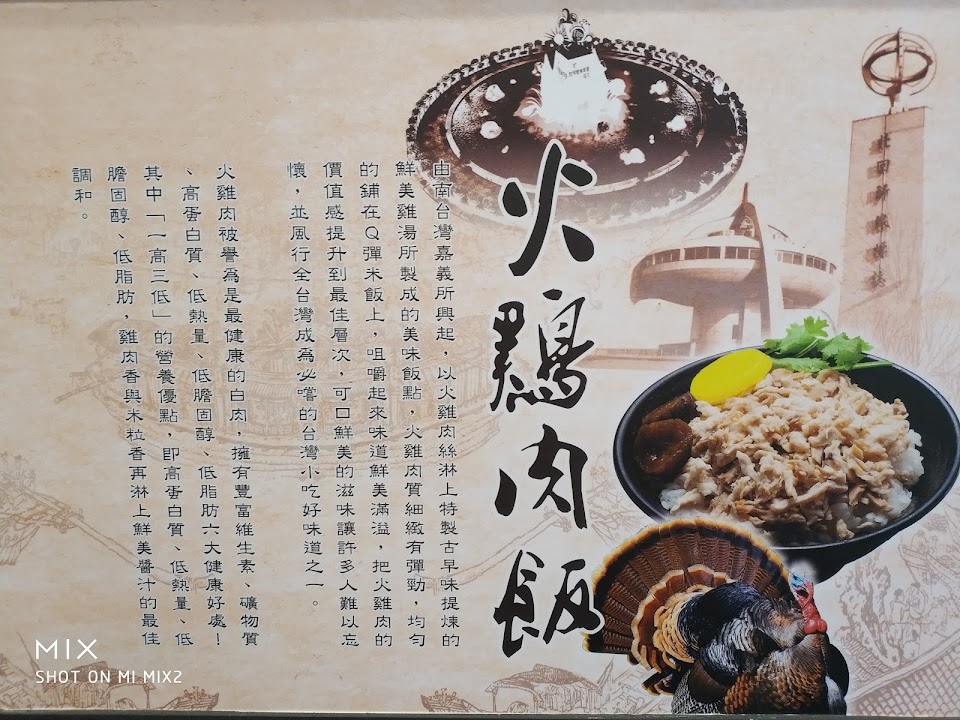 火鷄肉飯
由南台灣嘉義所興起，以火雞肉絲淋上特製古早味提煉的
鮮美雞湯所製成的美味飯點，火雞肉質細緻有彈勁，均勻
的鋪在Q彈米飯上，咀嚼起來味道鮮美滿溢，把火雞肉的
價值感提升到最佳層次，可口鮮美的滋味讓許多人難以忘
懷，並風行全台灣成為必嚐的台灣小吃好味道之一。
火雞肉被譽為是最健康的白肉，擁有豐富維生素、礦物質
、高蛋白質、低熱量、低膽固醇、低脂肪六大健康好處！
其中「一高三低」的營養優點，即高蛋白質、低熱量、低
膽固醇、低脂肪，雞肉香與米粒香再淋上鮮美醬汁的最佳
調和。
MIX
SHOT ON MI MIX2